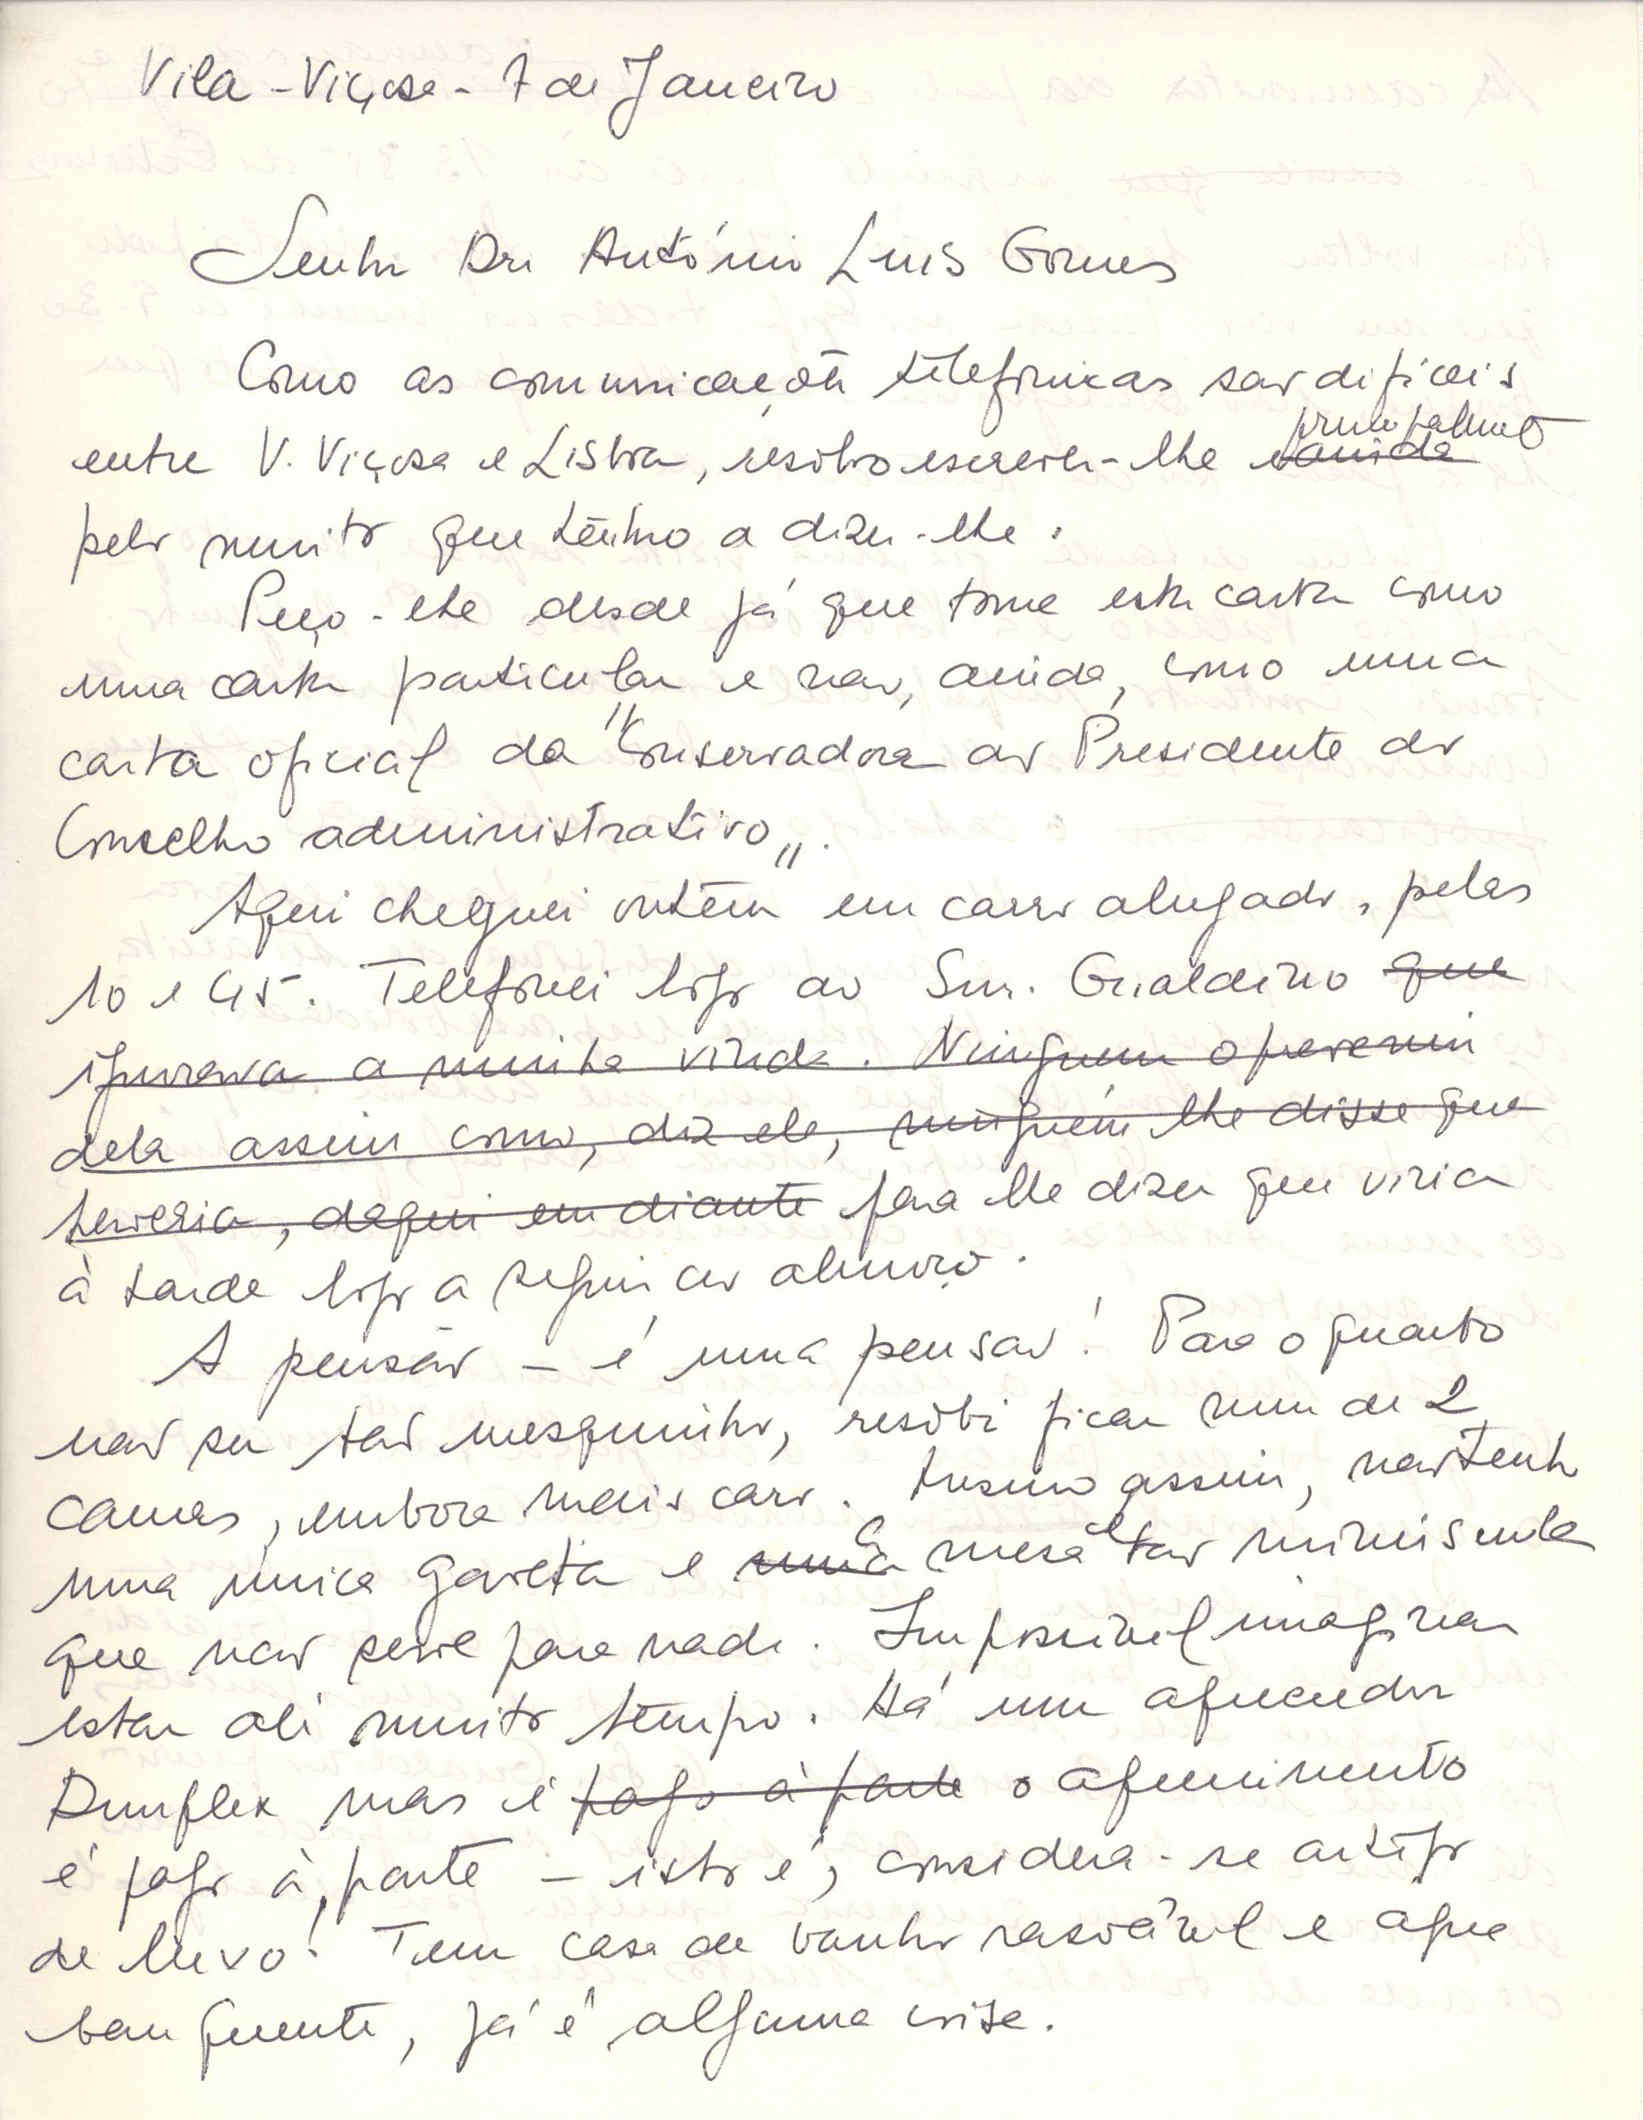 Vila-Viçosa - 7 de Janeiro
Senhor Dr. António Luis Gomes
Como as comunicações telefónicas são difíceis
principalmente
entre V. Viçosa e Lisboa, resolvo escrever-lhe ainda
pelo muito que tenho a dizer-lhe.
Peço-lhe desde já que tome esta carta como
uma carta particular e não, ainda, como uma
carta oficial da "Conservadora ao Presidente do
Conselho administrativo".
Aqui cheguei ontem em carro alugado, pelas
10 e 45. Telefonei logo ao Snr. Gualdino que
ignorava a minha vinda. Ninguem o preveniu
dela assim como, diz ele, ninguém lhe disse que
haveria, daqui em diante para lhe dizer que viria
à tarde logo a seguir ao almoço.
A pensão - é uma pensão! Para o quarto
não ser tão mesquinho, resolvi ficar num de 2
camas, embora mais caro. Mesmo assim, não tenho
uma unica gaveta e uma a mesa é tão minuscula
que não serve para nada. Impossível imaginar
estar ali muito tempo. Há um aquecedor
Dimplex mas é pago à parte o aquecimento
é pago à parte - isto é, considera-se artigo
de luxo! Tem casa de banho razoável e agua
bem quente, já é alguma coisa.